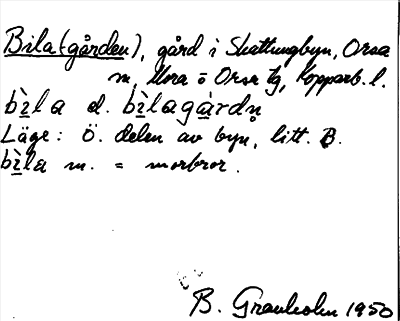 Bila(gården), gård i Skattungbyn, Orsa
m. Mora o Orsa tg, Kopparb. l.
bìla el. bìlagàrdn̥
Läge: Ö. delen av byn, litt. B.
bìla m. = morbror.
B. Granholm 1950